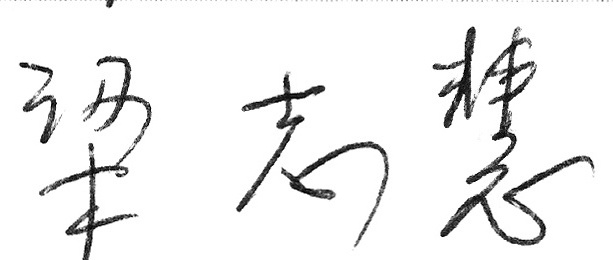 梁志慧